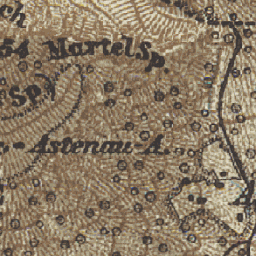 ch
54 Martel Sp.
Sp.
Astenau-A.
A